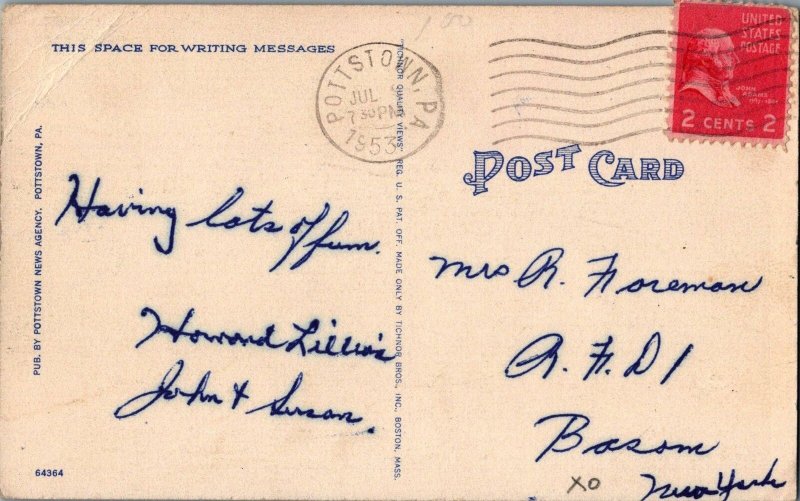 THIS SPACE FOR WRITING MESSAGES
POTTSTOWN, PA.
JUL
7 30 PM
1953
UNITED
STATES
POSTAGE
JOHN
ADAMS
2 CENTS 2
POST CARD
Having lots of fun.
Howard Lillia's
John & Susan.
Mrs R. Foreman
R. F. D 1
Basom
New York
XO
PUB. BY POTTSTOWN NEWS AGENCY, POTTSTOWN, PA.
"TICHNOR QUALITY VIEWS" REG. U. S. PAT. OFF. MADE ONLY BY TICHNOR BROS., INC., BOSTON, MASS.
64364